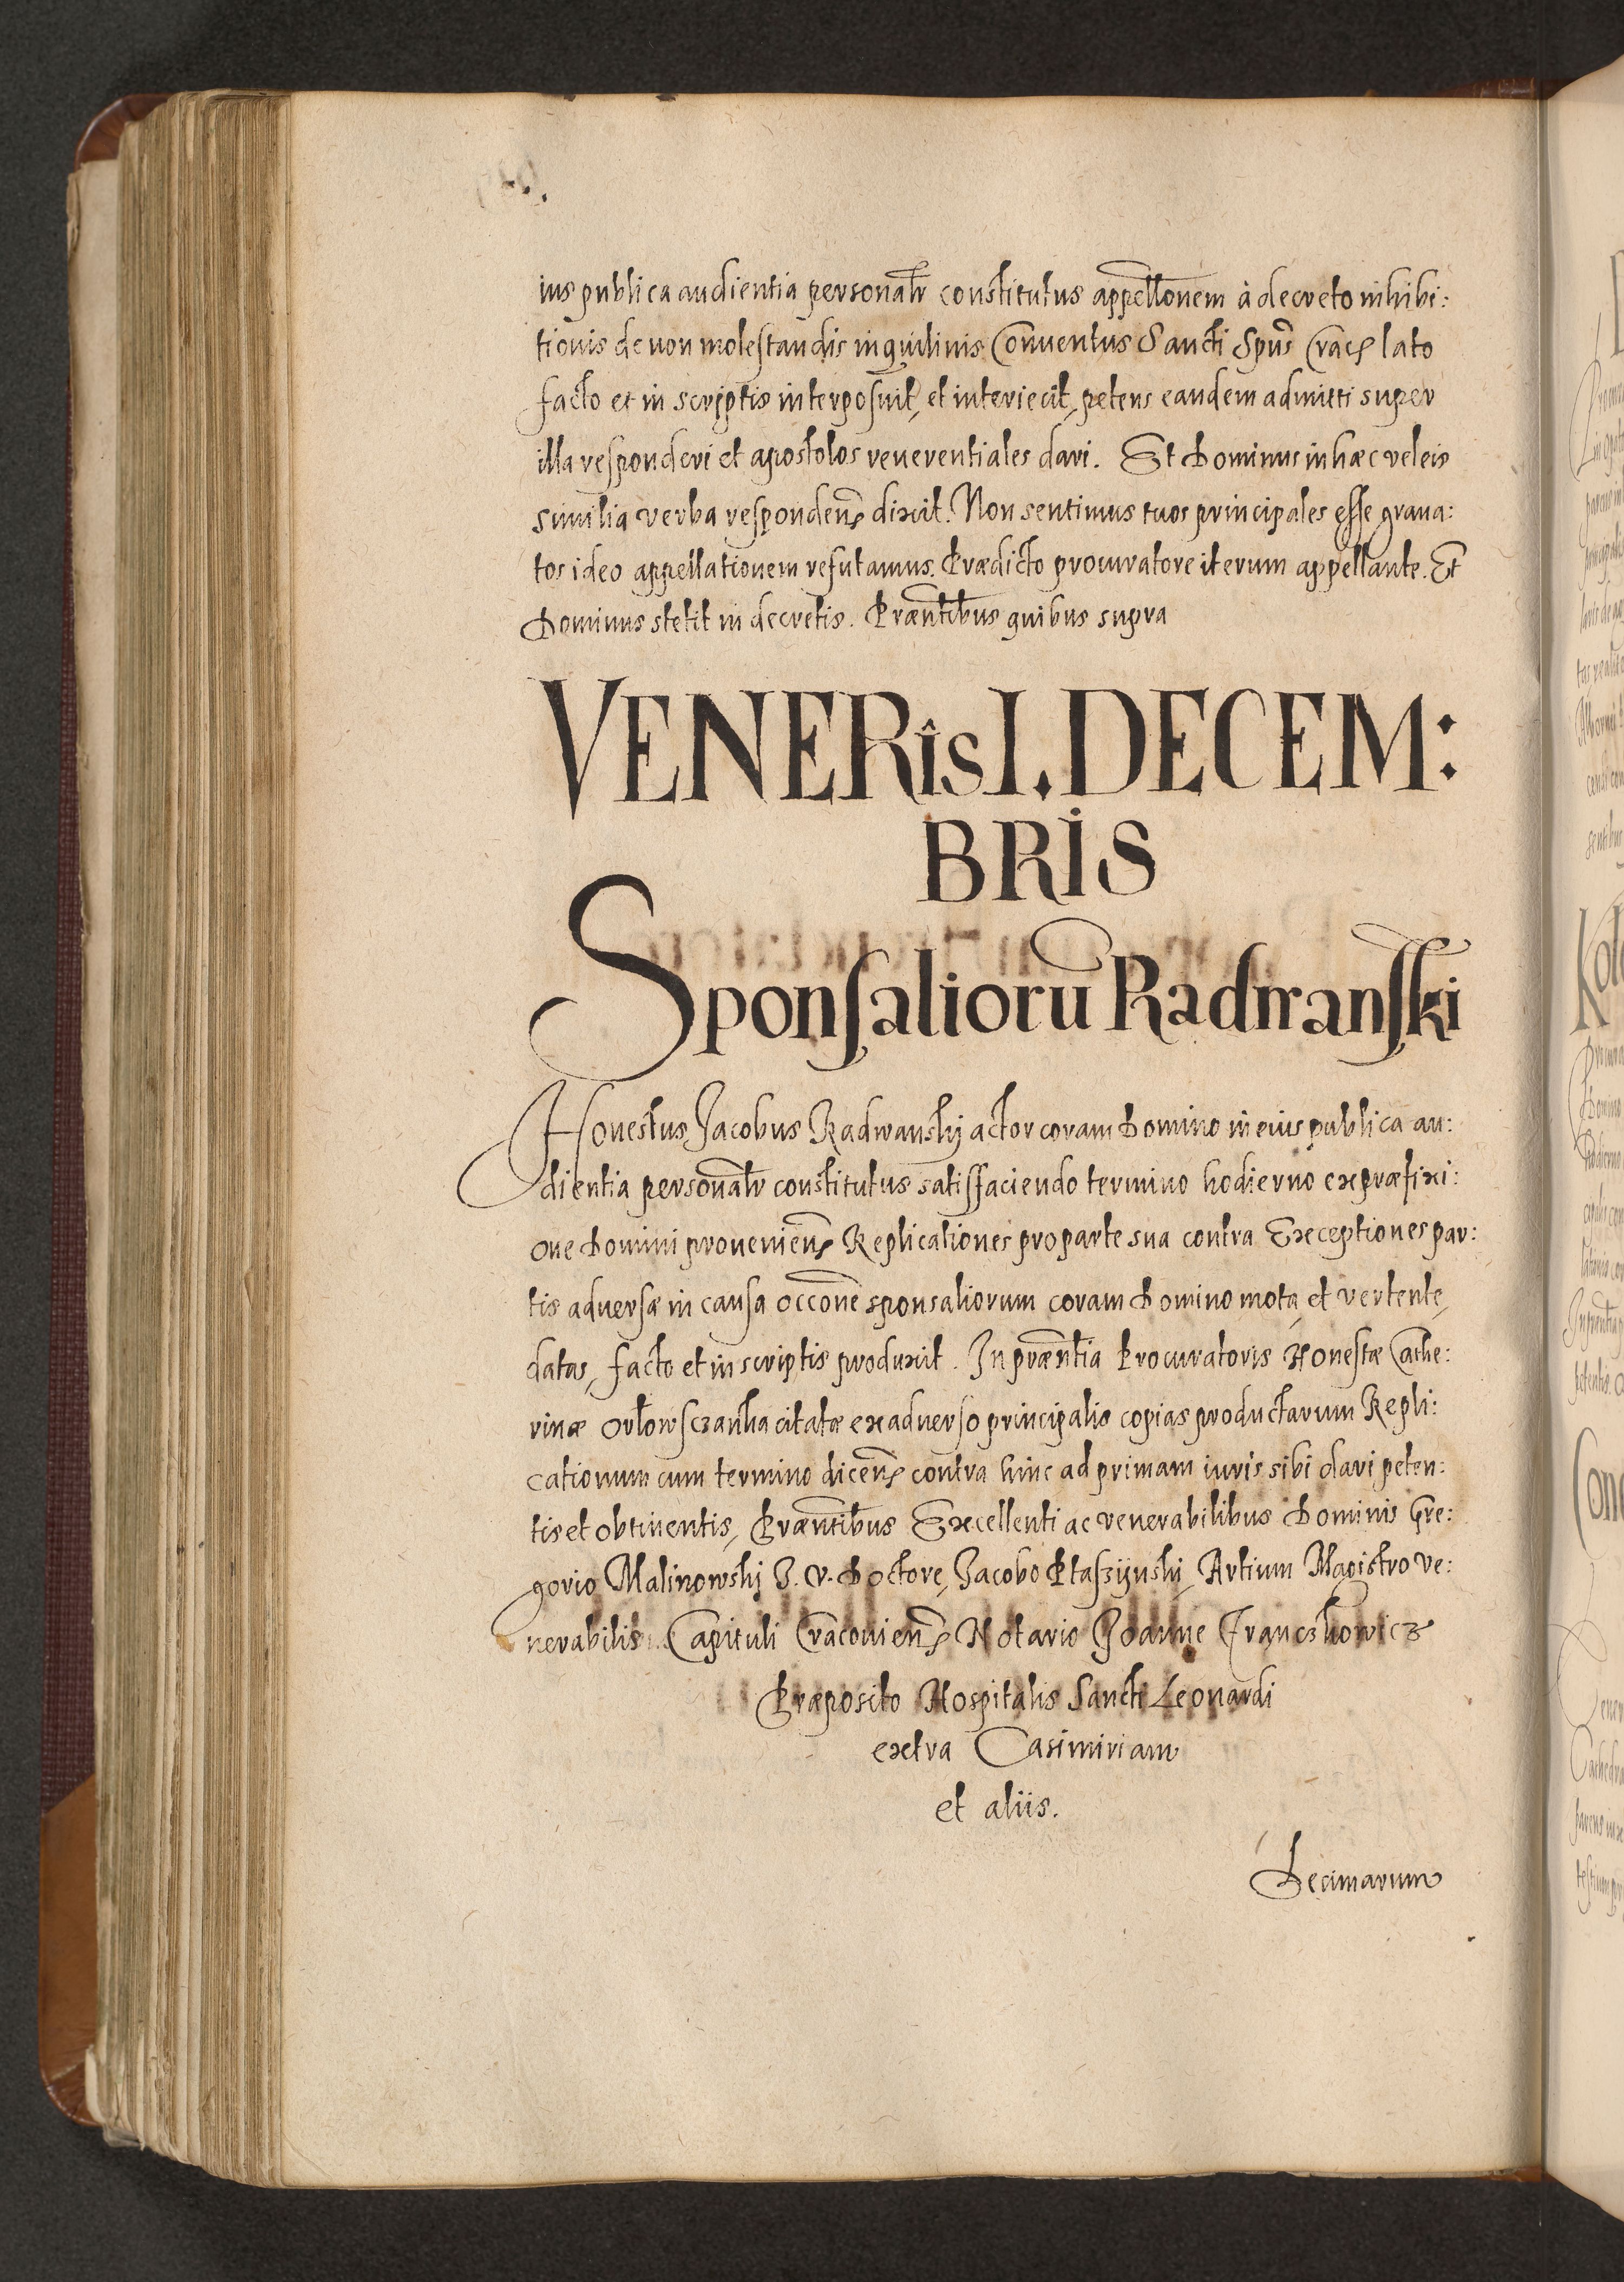 ius publica audientia personalr constitutus appellonem à decreto inhibi:
tionis de non molestandis inquilinis Conventus Sancti Spūs Crac lato
facto et in scriptis interposuit, et interiecit, petens eandem admitti super
illa responderi et apostolos reverentiales dari. Et Dominus in hæc vel eis
similia verba respondens dixit. Non sentimus tuos principales esse grava:
tos ideo appellationem refutamus. Prædicto procuratore iterum appellante. Et
Dominus stetit in decretis. Præntibus quibus supra
VENERîs I. DECEM:
BRIS
Sponsalioru Radwanski
Honestus Jacobus Radwanskj actor coram Domino in eius publica au:
dientia personalr constitutus satisfaciendo termino hodierno ex præfixi:
one Domini provenien Replicationes pro parte sua contra Exceptiones par:
tis adversæ in causa occone sponsaliorum coram Domino mota et vertente,
datas, facto et in scriptis produxit. In præntia Procuratoris Honestæ Cathe:
rinæ Orlowsczanka citatæ ex adverso principalis copias productarum Repli:
cationum cum termino dicen contra hinc ad primam iuris sibi dari peten:
tis et obtinentis, Præntibus Excellenti ac venerabilibus Dominis Gre:
gorio Malinowskj J. V. Doctore, Jacobo Ptaszijnskj, Artium Magistro ve:
nerabilis Capituli Cracovien Notario Joanne Franczkowicz
Præposito Hospitalis Sancti Leonardi
extra Casimiriam
et aliis.
Decimarum